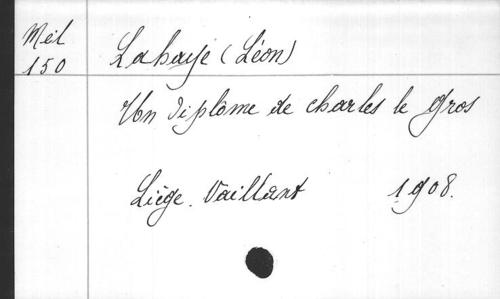 Mél
150
Lahaye (Léon)
Un diplôme de charles le gros
Liège. Vaillant 1908.